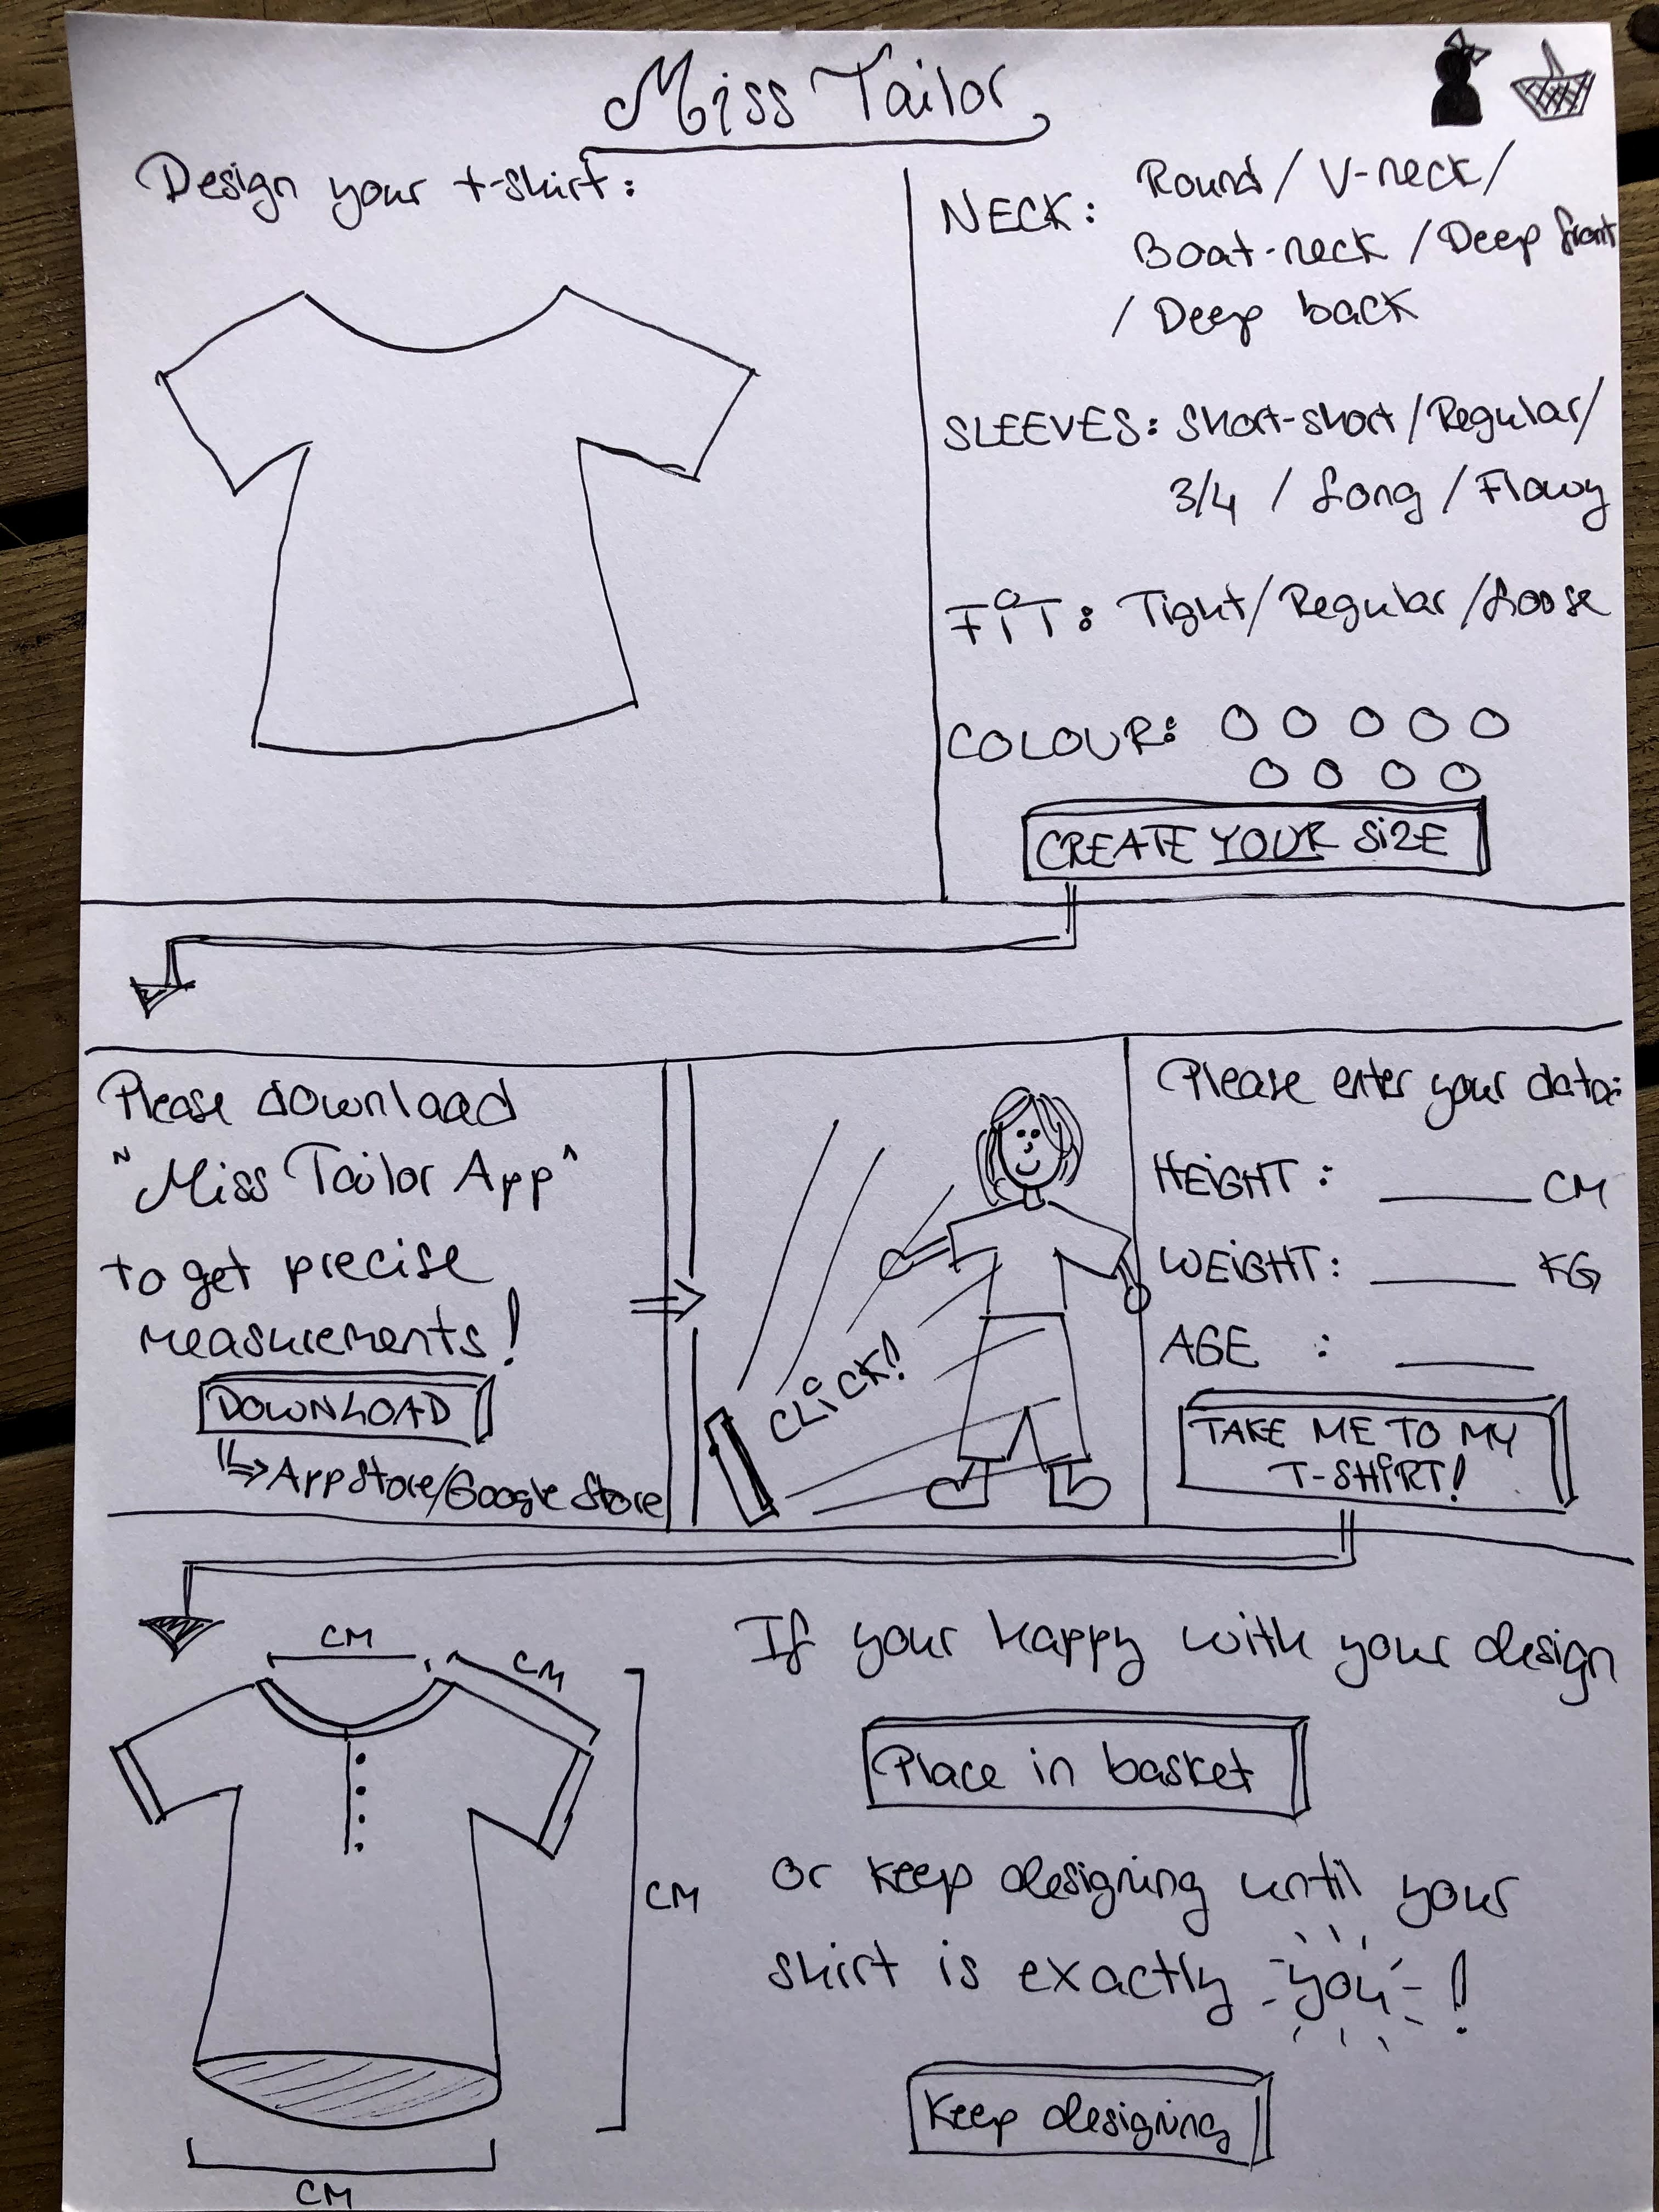 Miss Tailor
Design your t-shirt:
NECK: Round / V-neck /
Boat-neck / Deep front
/ Deep back
SLEEVES: Short-short / Regular /
3/4 / Long / Flowy
FIT: Tight / Regular / Loose
COLOUR:
CREATE YOUR SIZE
Please download
"Miss Tailor App"
to get precise
measurements!
DOWNLOAD
App Store/Google Store
CLICK!
Please enter your data:
HEIGHT: ____ CM
WEIGHT: ____ KG
AGE : ____
TAKE ME TO MY
T-SHIRT!
CM
CM
CM
CM
If your happy with your design
Place in basket
or keep designing until your
shirt is exactly you!
Keep designing